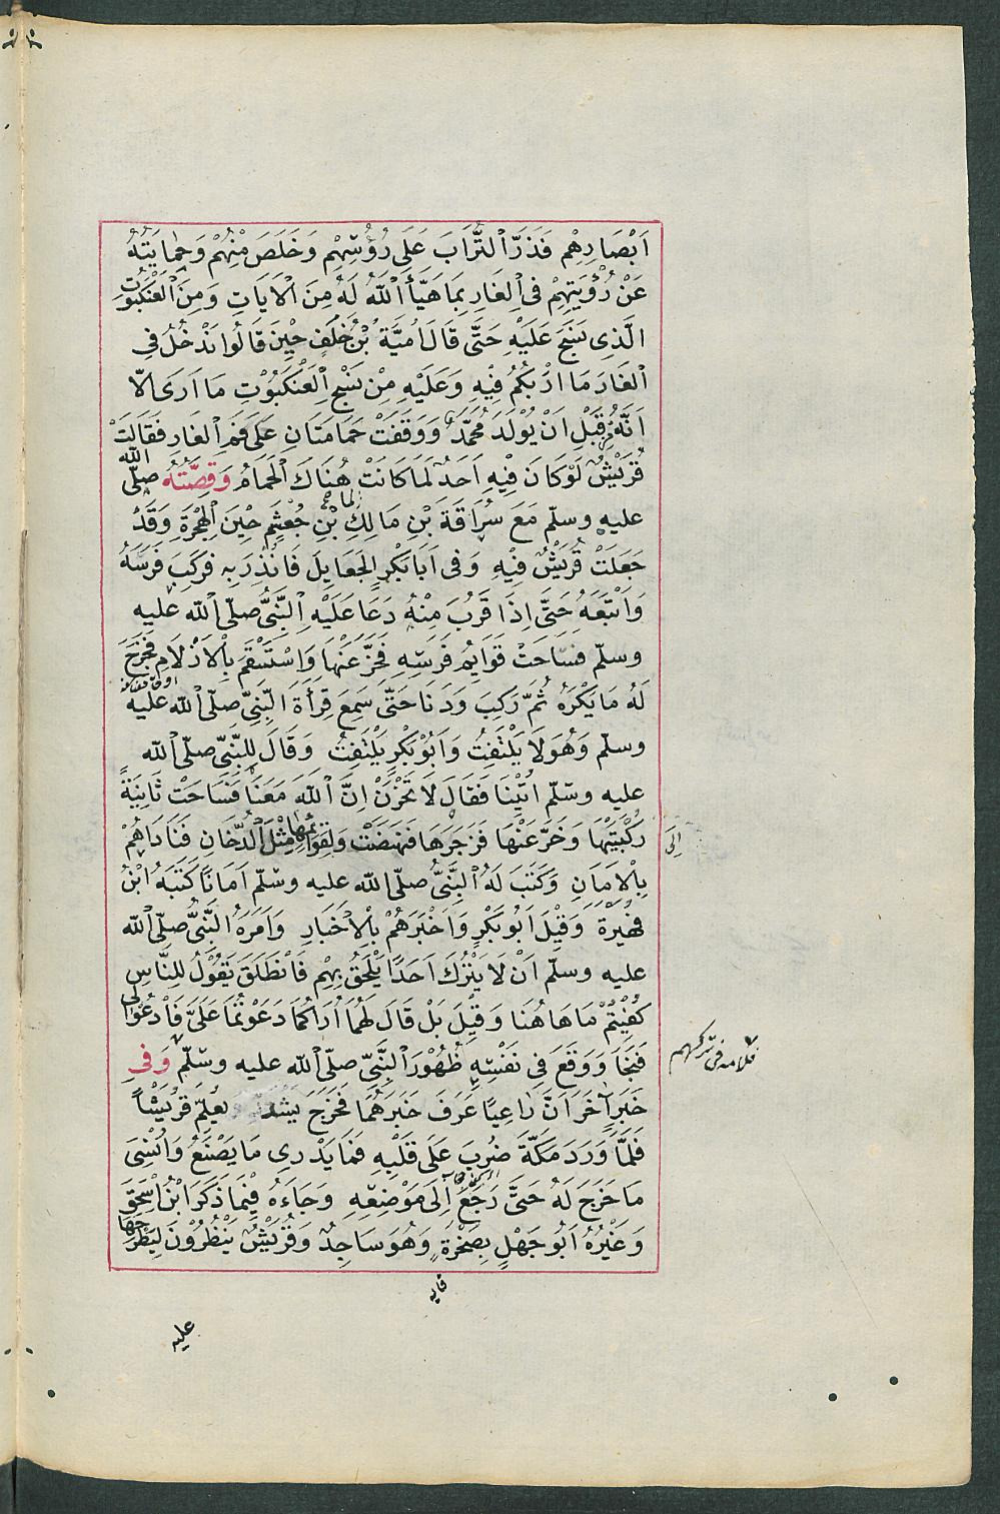 اَبْصَارِهِم فَذَرَّ اَلتُّرَابَ عَلَى رُؤُسِّهِمْ وَخَلَصَ مِنْهُمْ وَحِمَايَتُهُ
عَنْ رُؤْيَتِهِمْ فِى اَلغَارِ بِمَا هَيَّأَ اَللّٰهُ لَهُ مِنَ اَلْاٰيَاتِ وَمِنَ اَلْعَنْكَبُوْتِ
الَّذِى نَسَجَ عَلَيْهِ حَتَّى قَالَ اُمَيَّةُ بْنُ خَلَفٍ حِيْنَ قَالُوا نَدْخُلُ فِى
اَلغَارَ مَا اَرَبُكُمْ فِيْهِ وَعَلَيْهِ مِنْ نَسْجِ اَلْعَنْكَبُوْتِ مَا اَرَى اَلَّا
اَنَّهُ مِنْ قَبْلِ اَنْ يُوْلَدَ مُحَمَّدٌ وَوَقَفَتْ حَمَامَتَانِ عَلَى فَمِ اَلغَارِ فَقَالَتْ
قُرَيْشٌ لَوْ كَانَ فِيْهِ اَحَدٌ لَمَا كَانَتْ هُنَاكَ اَلْحَمَامُ وَقِصَّتُهُ صلّى اللّٰه
عليهِ وسلّم مَعَ سُرَاقَةَ بْنِ مَالِكِ بْنِ جُعْشُمٍ حِيْنَ اَلْهِجْرَةِ وَقَدْ
جَعَلَتْ قُرَيْشٌ فِيْهِ وَفِى اَبَا بَكْرٍ الجَعَايِلَ فَانْذِرَ بِهِ فَرَكِبَ فَرَسَهُ
وَاتَّبَعَهُ حَتَّى اِذَا قَرُبَ مِنْهُ دَعَا عَلَيْهِ اِلنَّبِىُّ صلّى اللّٰه عليه
وسلّم فسَاحَتْ قَوَايِمُ فَرَسِهِ فَخَرَّ عَنْهَا وَاسْتَقْسَمَ بِاْلاَزْلاَمِ فَخَرَجَ
لَهُ مَا يَكْرَهُ ثُمَّ رَكِبَ وَدَنَا حَتَّى سَمِعَ قِرأَةَ النَّبِىِّ صلّى اللّٰه عليه
وسلّم وَهُوَ لاَ يَلْتَفِتُ وَاَبُوْ بَكْرٍ يَلْتَفِتُ وَقَالَ لِلنَّبِىِّ صلّى اللّٰه
عليه وسلّم اُتِيْنَا فَقَالَ لاَ تَحْزَنْ اِنَّ اللّٰهَ مَعَنَا فَسَاحَتْ ثَانِيَةً
اِلَى
رُكْبَتِهَا وَخَرَّ عَنْهَا فَزَجَرَهَا فَنَهَضَتْ وَلِقَوَائِمِهَا مِثْلُ اَلدُّخَانِ فَنَادَاهُمْ
بِاْلاَمَانِ وَكَتَبَ لَهُ اَلنَّبِىُّ صلّى اللّٰه عليه وسلّم اَمَانًا كَتَبَهُ ابْنُ
فُهَيْرَةَ وَقِيْلَ اَبُو بَكْرٍ وَاَخْبَرَهُمْ بِاْلاَخْبَارِ وَاَمَرَهُ النَّبِىُّ صلّى اللّٰه
عليه وسلّم اَنْ لاَ يَتْرُكَ اَحَدًا يَلْحَقُ بِهِمْ فَانْطَلَقَ يَقُوْلُ لِلنَّاسِ
كُفِيْتُمْ مَا هَاهُنَا وَقِيْلَ بَلْ قَالَ لَهُمَا اُرَاكُمَا دَعَوْتُمَا عَلَىَّ فَادْعُوَا لِى
فَنَجَا وَوَقَعَ فِى نَفْسِهِ ظُهُوْرُ اَلنَّبِىِّ صلّى اللّٰه عليه وسلّم وَفِى
خَبَرٍ اٰخَرَ اَنَّ رَاعِيًا عَرَفَ خَبَرَهُمَا فَخَرَجَ يَشْتَدُّ يُعْلِمُ قُرَيْشًا
فَلَمَّا وَرَدَ مَكَّةَ ضُرِبَ عَلَى قَلْبِهِ فَمَا يَدْرِى مَا يَصْنَعُ وَاُنْسِىَ
مَا خَرَجَ لَهُ حَتَّى رَجَعَ اِلَى مَوْضِعِهِ وَجَاءَهُ فِيْمَا ذَكَرَ ابْنُ اِسْحٰقَ
وَغَيْرُهُ اَبُو جَهْلٍ بِصَخْرَةٍ وَهُوَ سَاجِدٌ وَقُرَيْشٌ يَنْظُرُوْنَ لِيَطْرَحَهَا
عليه